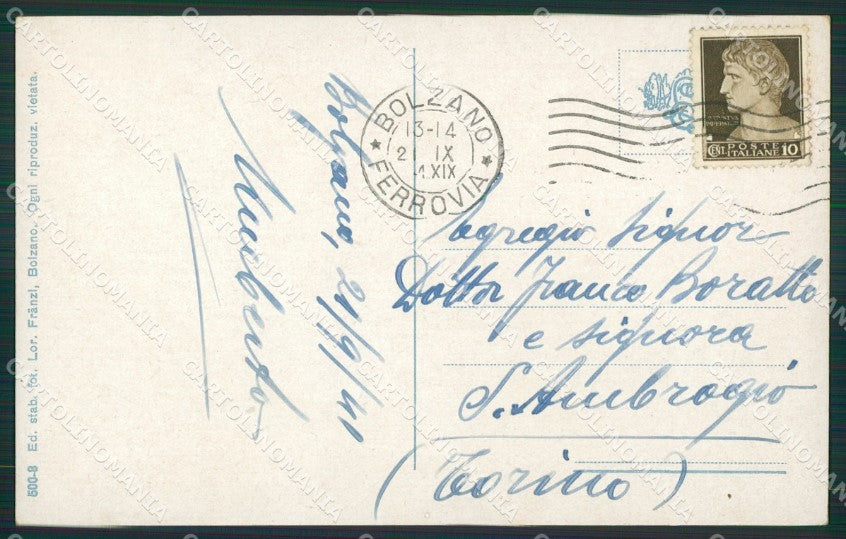 500-8 Ed. stab. fot. Lor. Fränzl, Bolzano. Ogni riproduz. vietata.
Bolzano, 21/9/41
Umberto
BOLZANO
13-14
21 IX
41.XIX
FERROVIA
CENT. POSTE ITALIANE 10
Egregio Signor
Dottor Franco Boratto
e Signora
S. Ambrogio
(Torino)
CARTOLINOMANIA